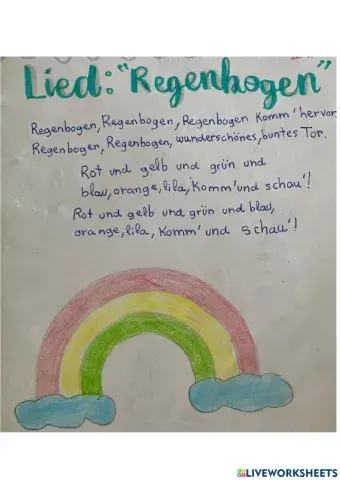 Lied: "Regenbogen"
Regenbogen, Regenbogen, Regenbogen Komm' hervor
Regenbogen, Regenbogen, wunderschönes, buntes Tor.
Rot und gelb und grün und
blau, orange, lila, Komm' und schau'!
Rot und gelb und grün und blau,
orange, lila, Komm' und schau'!
LIVEWORKSHEETS